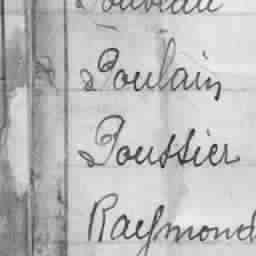 Poulain
Poussier
Raymond